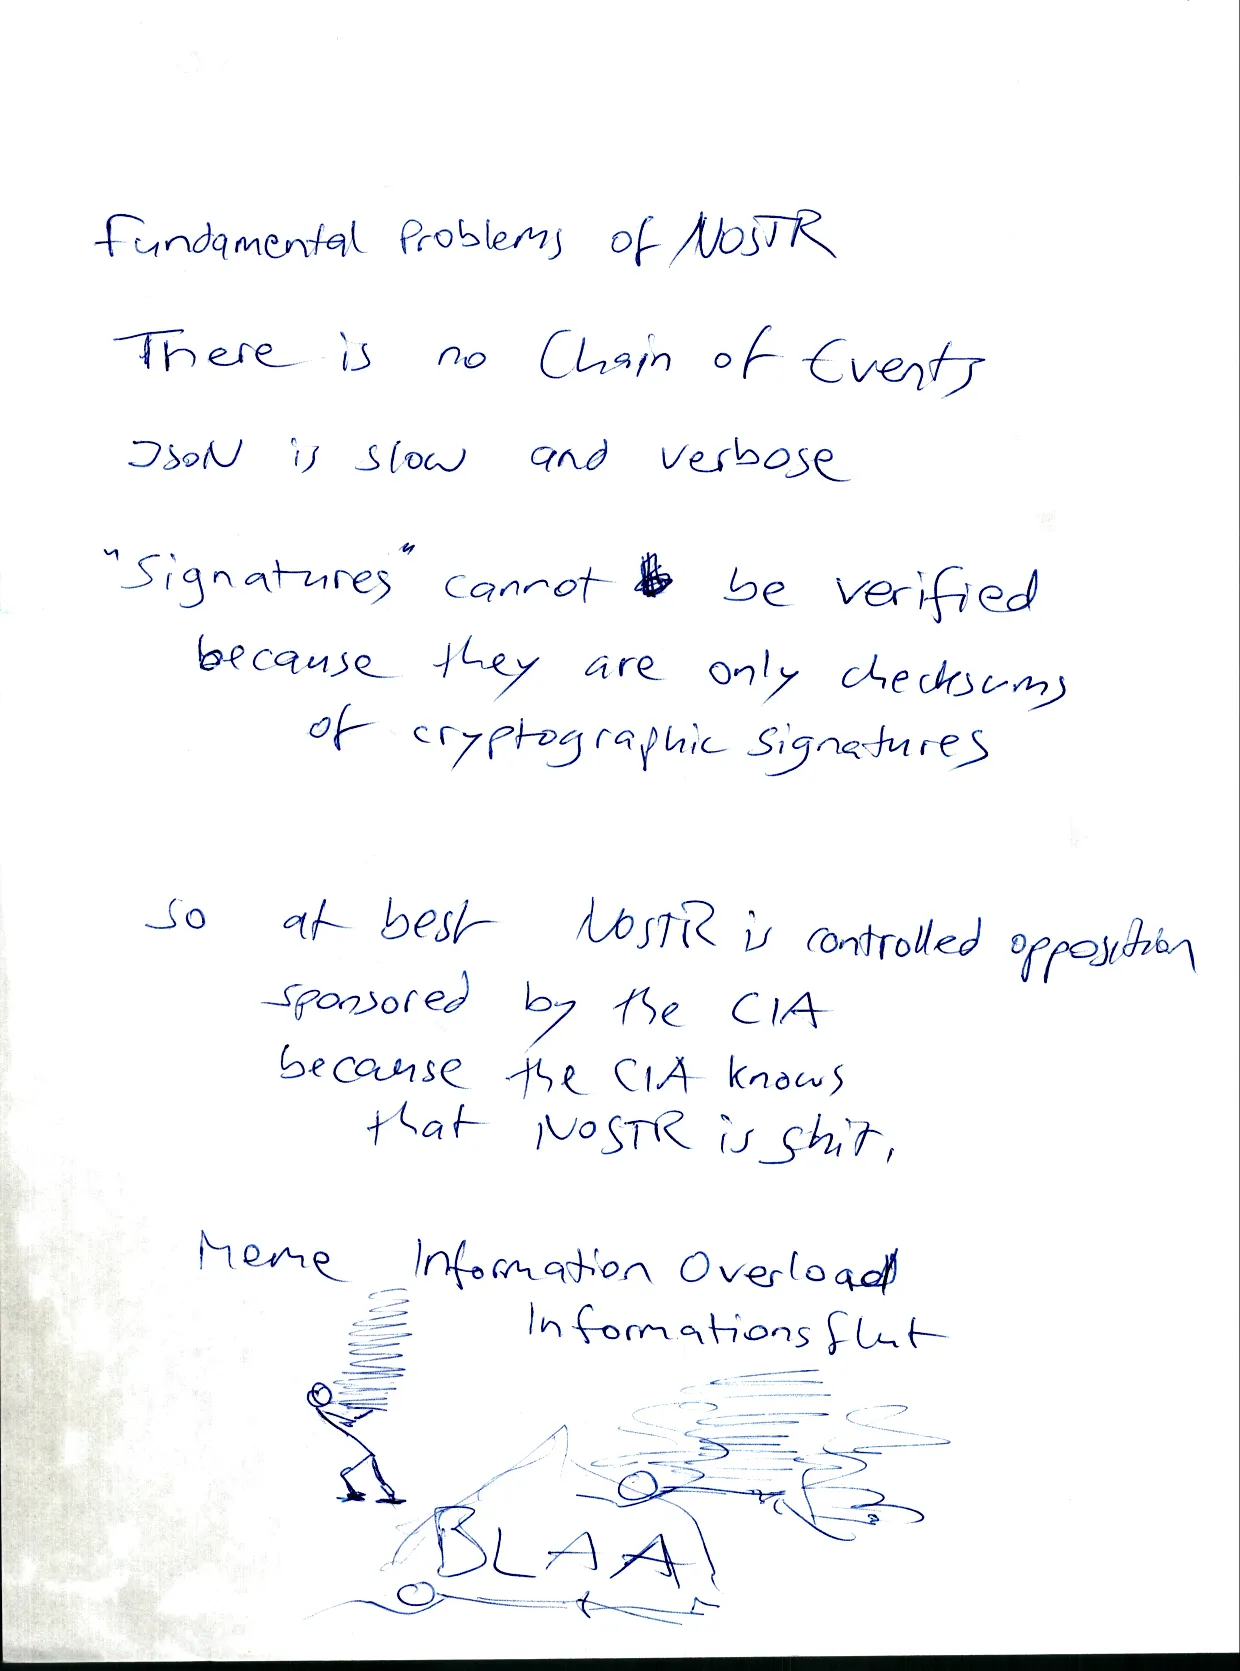 Fundamental Problems of NOSTR
There is no Chain of Events
JSON is slow and verbose
"Signatures" cannot be verified
because they are only checksums
of cryptographic signatures
so at best NOSTR is controlled opposition
sponsored by the CIA
because the CIA knows
that NOSTR is shit.
Meme Information Overload
Informationsflut
BLAA